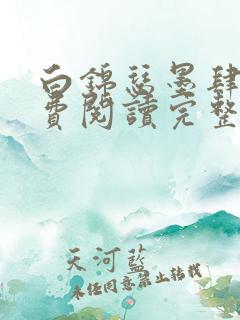 白錦瑟墨肆
費閱讀完整
天河藍
未經同意禁止轉載